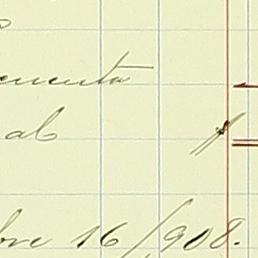 ementa
al $
bre 16/908.